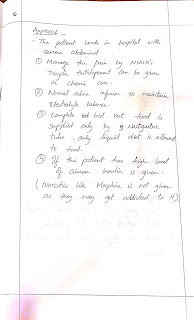 Approach
- The patient lands in hospital with
severe abdominal
① Manage the pain by NSAID's
Triple antidepresent can be given
in chronic case.
② Normal saline infusion to maintain
Electrolyte balance.
③ Complete bed rest food is
supplied only by a Nasogastric
tube. only liquid diet is allowed
to food.
④ If the patient has high level
of insulin is given.
(Narcotics like Morphine is not given
as they may get addicted to it)